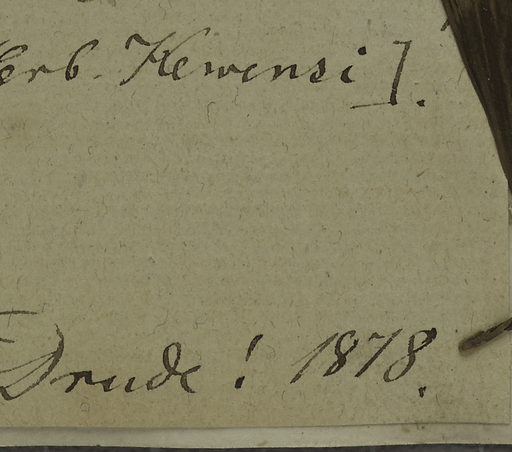 Herb. Kewensi].
Drude! 1878.